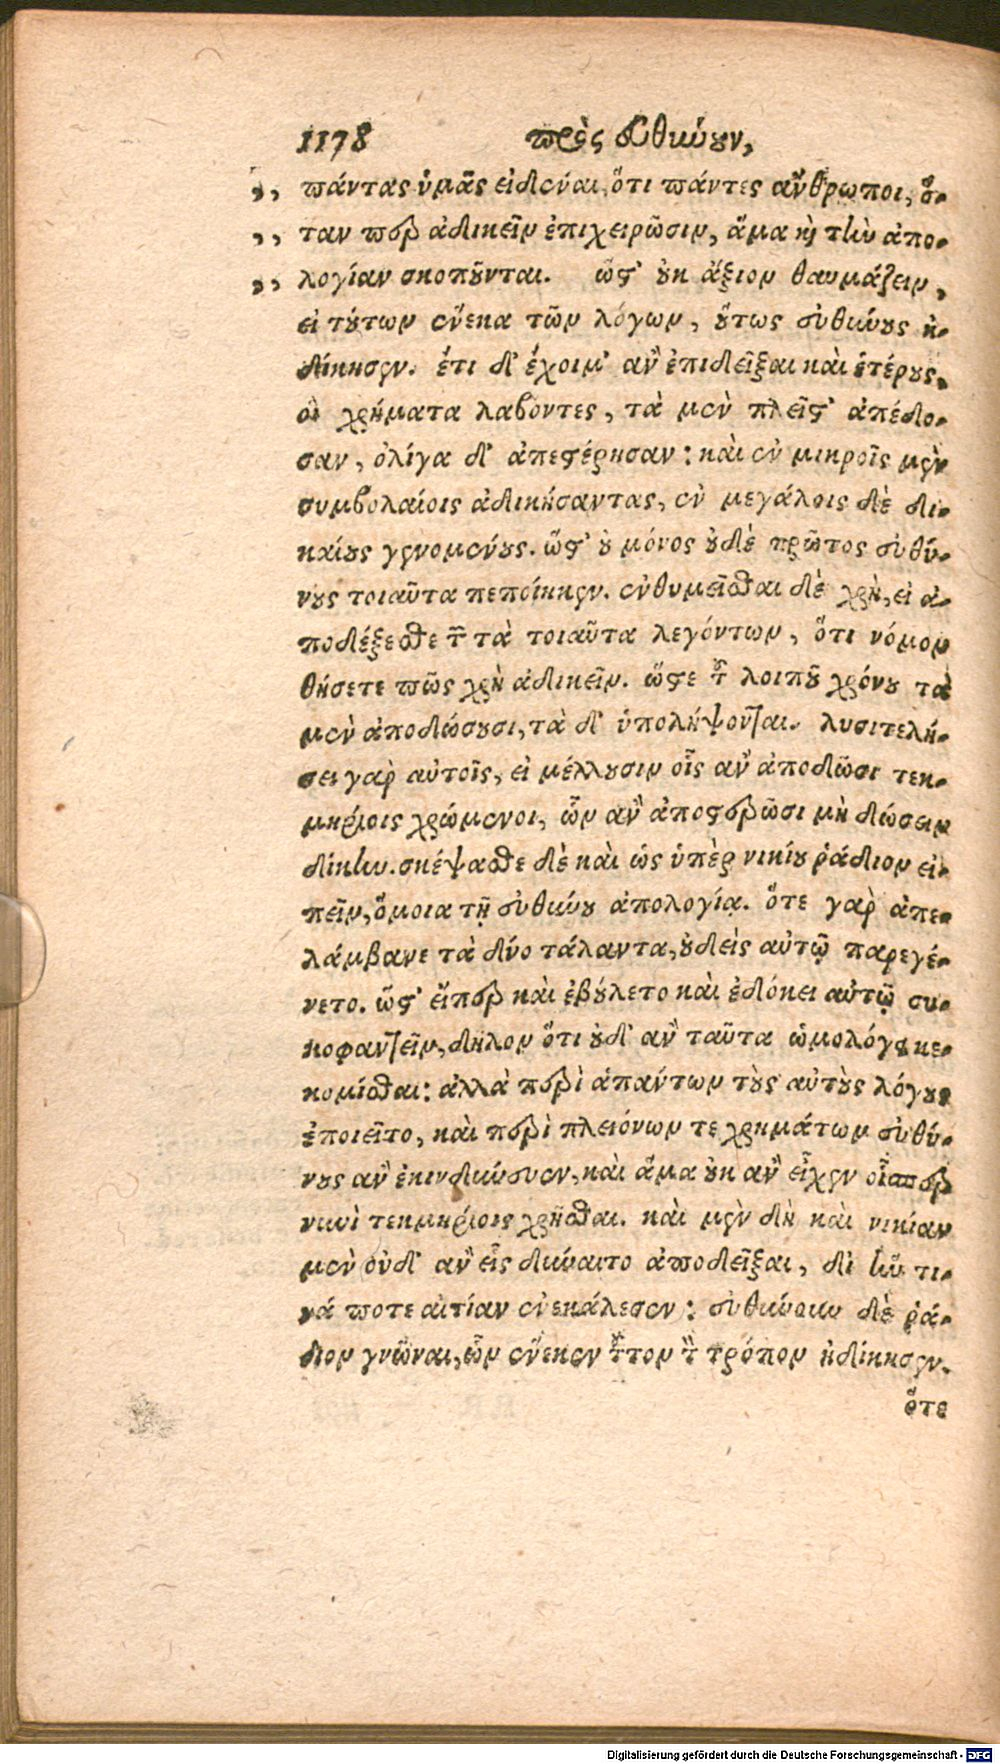 1178 πρὸς εὐθύνουν,
,, πάντας ὑμᾶς εἰδέναι, ὅτι πάντες ἄνθρωποι, ὅ-
,, ταν περ ἀδικεῖν ἐπιχειρῶσιν, ἅμα καὶ τὴν ἀπο-
,, λογίαν σκοποῦνται. ὥστ' οὐκ ἄξιον θαυμάζειν,
εἰ τούτων ἕνεκα τῶν λόγων, οὕτως εὐθύνους ἠ-
δίκησεν. ἔτι δ' ἔχοιμ' ἂν ἐπιδεῖξαι καὶ ἑτέρους,
οἳ χρήματα λαβόντες, τὰ μὲν πλεῖστ' ἀπέδο-
σαν, ὀλίγα δ' ἀπεστέρησαν: καὶ ἐν μικροῖς μὲν
συμβολαίοις ἀδικήσαντας, ἐν μεγάλοις δὲ δι-
καίους γενομένους. ὥστ' οὐ μόνος οὐδὲ πρῶτος εὐθύ-
νους τοιαῦτα πεποίηκεν. ἐνθυμεῖσθαι δὲ χρὴ, εἰ ἀ-
ποδέξεσθε τῶν τὰ τοιαῦτα λεγόντων, ὅτι νόμον
θήσετε πῶς χρὴ ἀδικεῖν. ὥστε τοῦ λοιποῦ χρόνου τὰ
μὲν ἀποδώσουσι, τὰ δ' ὑπολήψονται. λυσιτελή-
σει γὰρ αὐτοῖς, εἰ μέλλουσιν οἷς ἂν ἀποδῶσι τεκ-
μηρίοις χρώμενοι, ὧν ἂν ἀποστερῶσι μὴ δώσειν
δίκην. σκέψασθε δὲ καὶ ὡς ὑπὲρ νικίου ῥάδιον εἰ-
πεῖν, ὅμοια τῇ εὐθύνου ἀπολογίᾳ. ὅτε γὰρ ἀπε-
λάμβανε τὰ δύο τάλαντα, οὐδεὶς αὐτῷ παρεγέ-
νετο. ὥστ' εἴπερ καὶ ἐβούλετο καὶ ἐδόκει αὐτῷ συ-
κοφαντεῖν, δῆλον ὅτι οὐδ' ἂν ταῦτα ὡμολόγει κε-
κομίσθαι: ἀλλὰ περὶ ἁπάντων τοὺς αὐτοὺς λόγους
ἐποιεῖτο, καὶ περὶ πλειόνων τε χρημάτων εὐθύ-
νους ἂν ἐκινδύνευεν, καὶ ἅμα οὐκ ἂν εἶχεν οἷσπερ
νυνὶ τεκμηρίοις χρῆσθαι. καὶ μὲν δὴ καὶ νικίαν
μὲν οὐδ' ἂν εἷς δύναιτο ἀποδεῖξαι, δι' ἥν τι-
νά ποτε αἰτίαν ἐνεκάλεσεν: εὐθύνουν δὲ ῥά-
διον γνῶναι, ὧν ἕνεκεν τοῦτον τὸν τρόπον ἠδίκησεν.
ὅτε
Digitalisierung gefördert durch die Deutsche Forschungsgemeinschaft - DFG